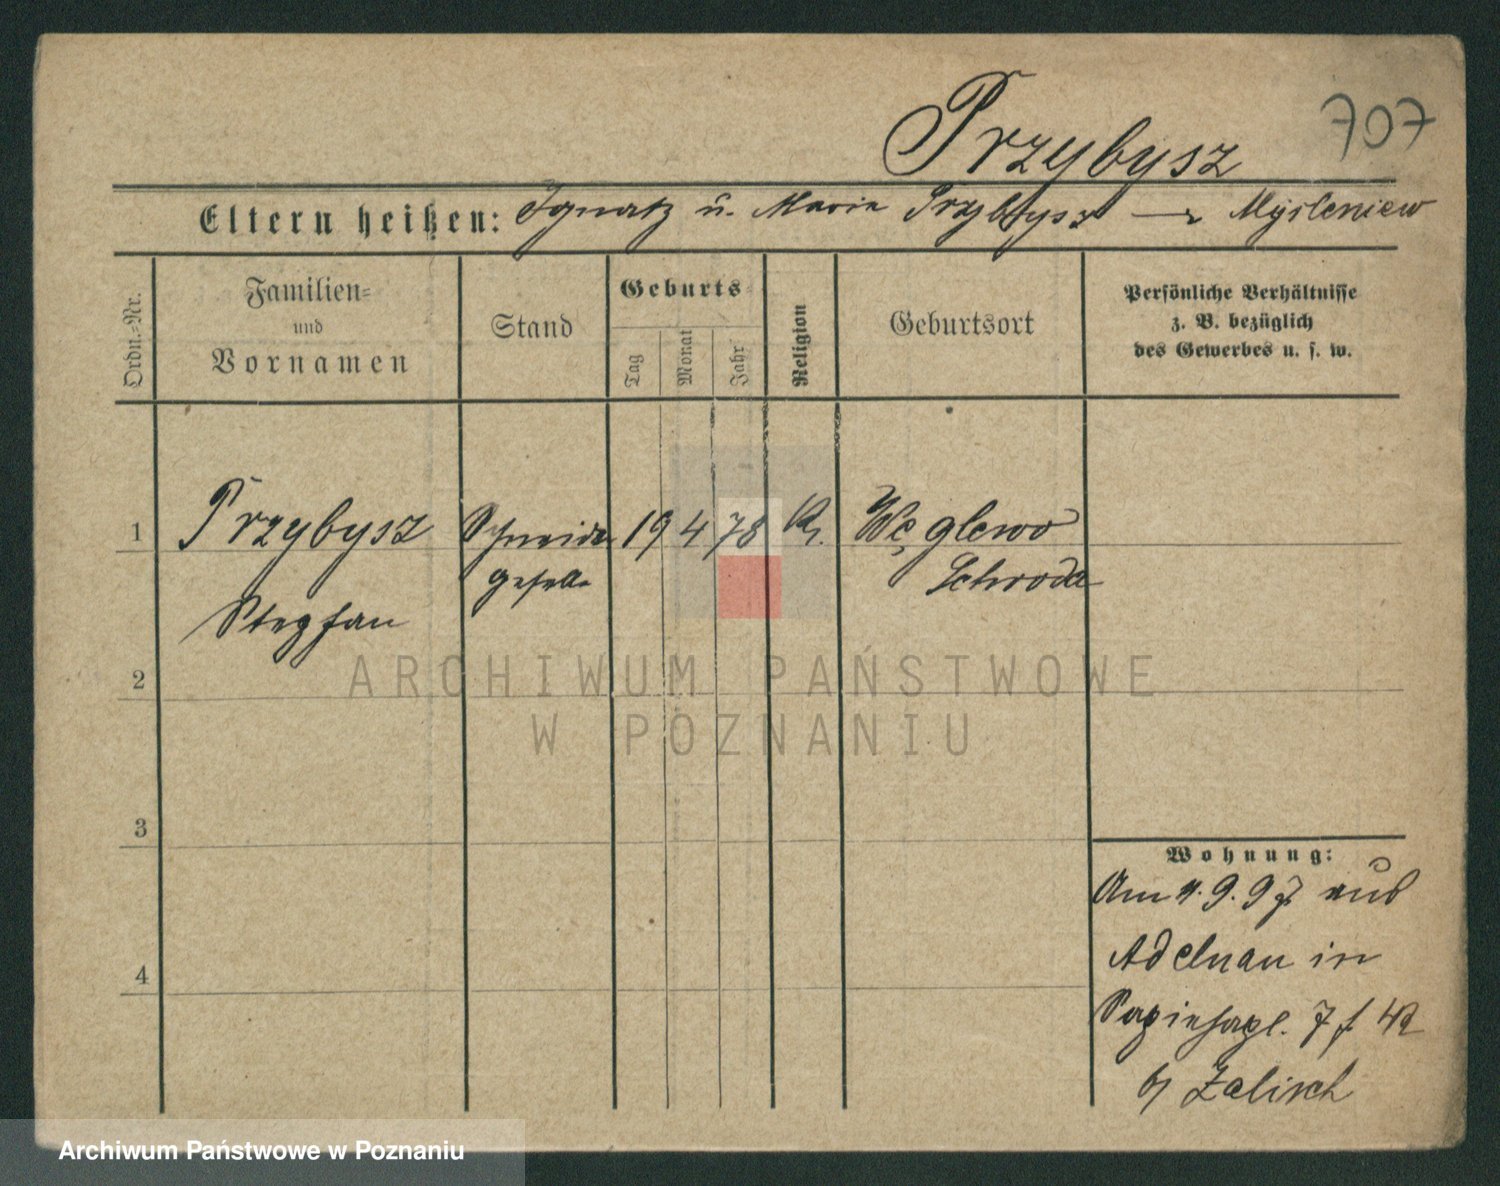 Przybysz 707
Eltern heißen: Ignatz u. Marie Przybysz — Mysleniew
Ordn.-Nr.
Familien-
und
Vornamen
Stand
Geburts-
Tag
Monat
Jahr
Religion
Geburtsort
Persönliche Verhältnisse
z. B. bezüglich
des Gewerbes u. s. w.
1 Przybysz Schneider 19 4 78 K. Węglewo
gesell Schroda
Stephan
2
3
4
Wohnung:
Am 4. 9. 97 aus
Adelnau in
Sapiehapl. 7
b/ Zalisch
ARCHIWUM PAŃSTWOWE
W POZNANIU
Archiwum Państwowe w Poznaniu